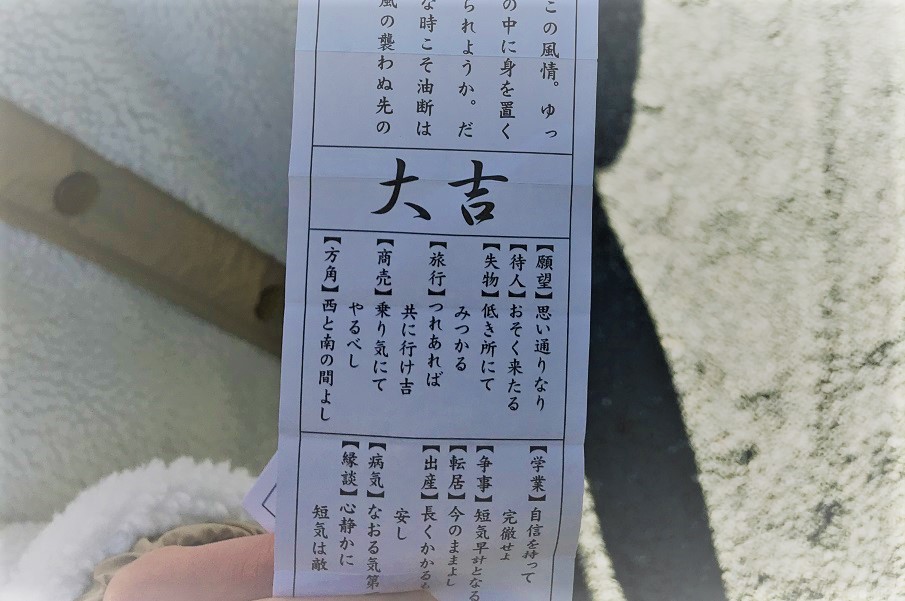 この風情。ゆっ
の中に身を置く
られようか。だ
な時こそ油断は
風の襲わぬ先の
大吉
【願望】思い通りなり
【待人】おそく来たる
【失物】低き所にて
みつかる
【旅行】つれあれば
共に行け吉
【商売】乗り気にて
やるべし
【方角】西と南の間よし
【学業】自信を持って
完徹せよ
【争事】短気早計となる
【転居】今のままよし
【出産】長くかかるも
安し
【病気】なおる気第
【縁談】心静かに
短気は敵